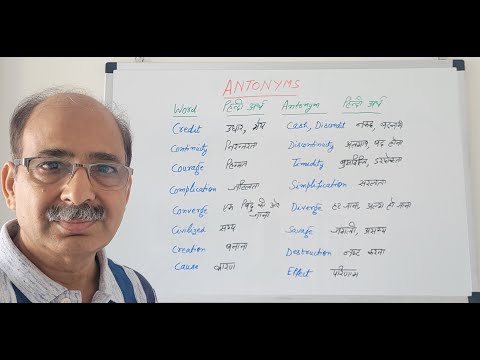 ANTONYMS
Word हिन्दी अर्थ Antonym हिन्दी अर्थ
Credit उधार, श्रेय Cash, Discredit नकद, बदनाम
Continuity निरन्तरता Discontinuity अलगाव, बंद होना
Courage हिम्मत Timidity बुजदिली, डरपोकता
Complication जटिलता Simplification सरलता
Converge एक बिंदु की ओर जाना Diverge हट जाना, अलग हो जाना
Civilized सभ्य Savage जंगली, असभ्य
Creation बनाना Destruction नष्ट करना
Cause कारण Effect परिणाम